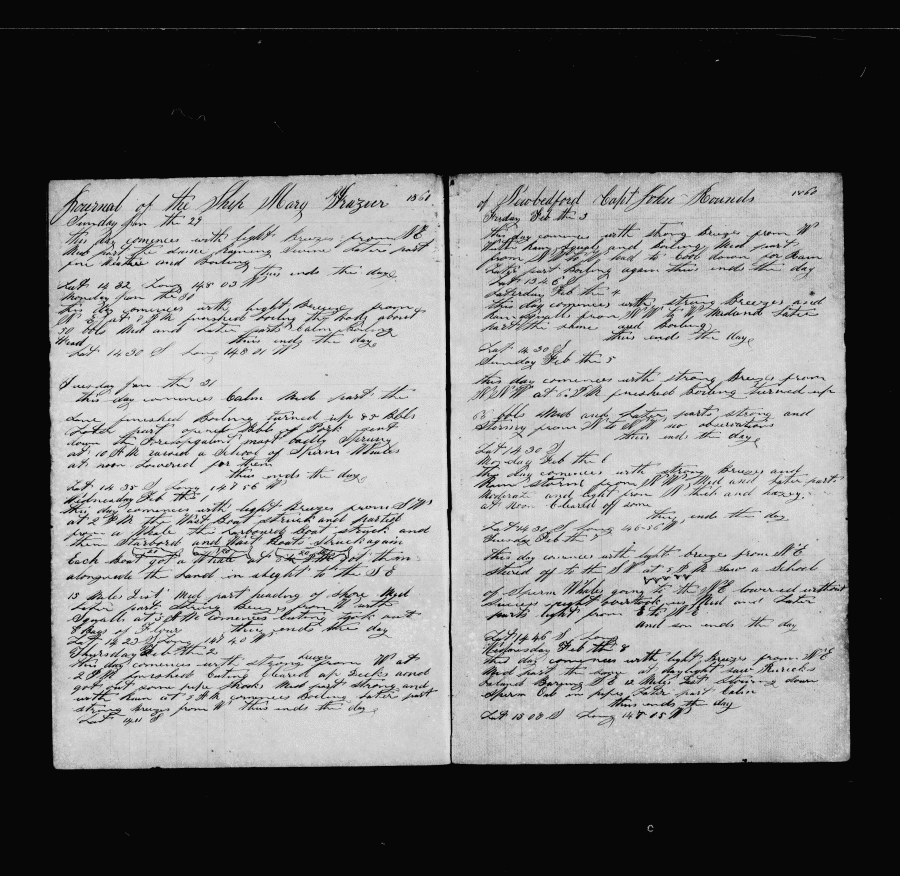 Journal of the Ship Mary Frazier 1860
Sunday Jan the 29
this day comences with light breezes from N E
Mid part the same Raining Some later part
fine Weather and Boiling
this ends the day
Lat 14 32 Long 148 03 W
Monday Jan the 30
this day comences with light breezes from
N E at 8 P M finished boiling the body about
50 bbls Mid and Later parts Calm boiling
Head this ends the day
Lat 14 30 S Long 148 01 W
Tuesday Jan the 31
this day comences Calm Mid part the
Same finished Boiling turned up 85 Bbls
Later part opened Cable of Pork sent
down the Foretopgalant mast badly Sprung
at 10 A M raised a School of Sperm Whales
at noon Lowered for them
this ends the day
Lat 14 35 S Long 147 56 W
Wednesday Feb the 1
this day comences with light breezes from S W
at 2 P M the Waist Boat struck and parted
from a Whale the Larboard boat struck and
then Starbord and Waist Boats struck again
Each boat got a Whale at got them
alongside the Land in sight to the S E
15 Miles Dist Mid part heading of shore Mid
Later part strong breezes from W with
Squalls at 5 A M comences cuting took out
8 Bags of Flour this ends the day
Lat 14 23 S Long 147 40 W
Thursday Feb the 2
this day comences with strong breezes from W at
2 P M finished Cuting cleared up Decks and
got out some pipe shooks Mid part strong and
with Rain at 5 A M comences Boiling later part
strong breezes from W this ends the day
Lat 14 11 S
of Newbedford Capt Rounds 1860
Friday Feb the 3
this day comences with strong breezes from W
With Rain Squals and boiling Mid part
from W N W had to Cool down for Rain
Later part boiling again this ends the day
Lat 13 46 S
Saturday Feb the 4
this day comences with strong breezes and
Rain Squalls from N W to W Mid and Later
part the same and boiling
this ends the day
Lat 14 30 S
Sunday Feb the 5
this day comences with strong breezes from
W N W at 6 P M finished boiling turned up
65 bbls Mid and Later parts strong and
Stormy from W to N W no observations
this ends the day
Lat 14 30 S
Monday Feb the 6
this day comences with strong breezes and
Rain storms from N W Mid and Later parts
Moderate and light from W thick and hazey
at Noon Cleared off some
this ends the day
Lat 14 30 S Long 146 56 W
Tuesday Feb the 7
this day comences with light breezes from N E
stered off to the S W at 5 A M saw a School
of Sperm Whales going to the N E lowered without
success Mid and Later
parts light from E to N E
and soo ends the day
Lat 14 46 S Long
Wednesday Feb the 8
this day comences with light breezes from N E
Mid part the same at Daylight saw
Island Baring N E 12 Miles Dist Stowing down
Sperm Oil in pipes Later part Calm
this ends the day
Lat 15 08 S Long 147 15 W